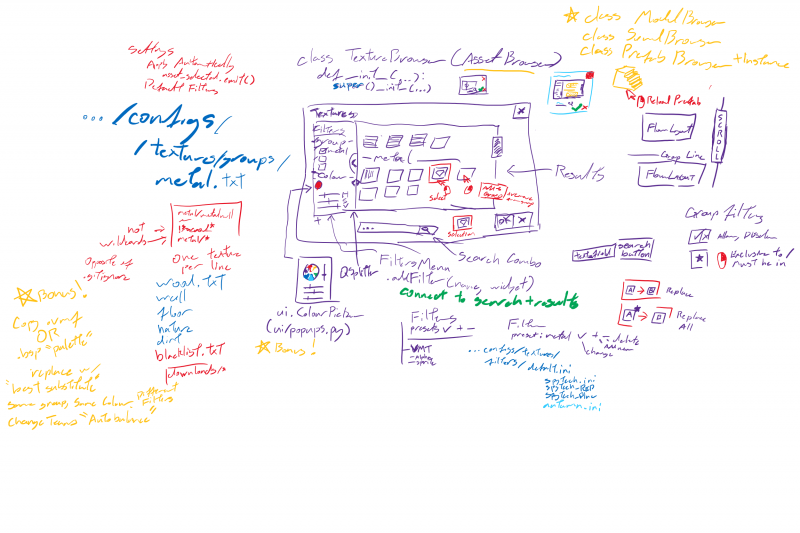 Settings
Apply Automatically
asset_selected.emit()
Default Filters
class TextureBrowser (AssetBrowser)
def __init__(...):
super().__init__(...)
class ModelBrowser
class SoundBrowser
class Prefab Browser + Instance
Reload Prefab
FlowLayout
Group Line
FlowLayout
SCROLL
.../configs/
/texture/groups/
metal.txt
Textures
X
Filters
Group -
metal
Colour -
H
S
V
+
- metal
select
Results
...
selection
OK
X
Search Combo
Splitter
FiltersMenu
.addFilter(name, widget)
connect to search + results
ui.ColourPicker
(ui/popups.py)
Bonus!
not
wildcards
metal/metalwall
metal/*
Opposite of
.gitignore
One texture
per line
wood.txt
wall
floor
nature
dirt
blacklist.txt
downloads/*
Bonus!
OR
.bsp "palette"
replace w/
"best substitute"
same group, same colour, different
Filters
Change Teams "Autobalance"
Group Filtering
Exclusive to /
must be in
textfield
search
button
A → B
Replace
A* → B
Replace
All
Filters
presets v + -
VMT
- alpha
Filter
preset: metal v + -
delete
change
...configs/textures/
filters/default.ini
spytech.ini
spytech_RED
spytech_BLU
autumn.ini